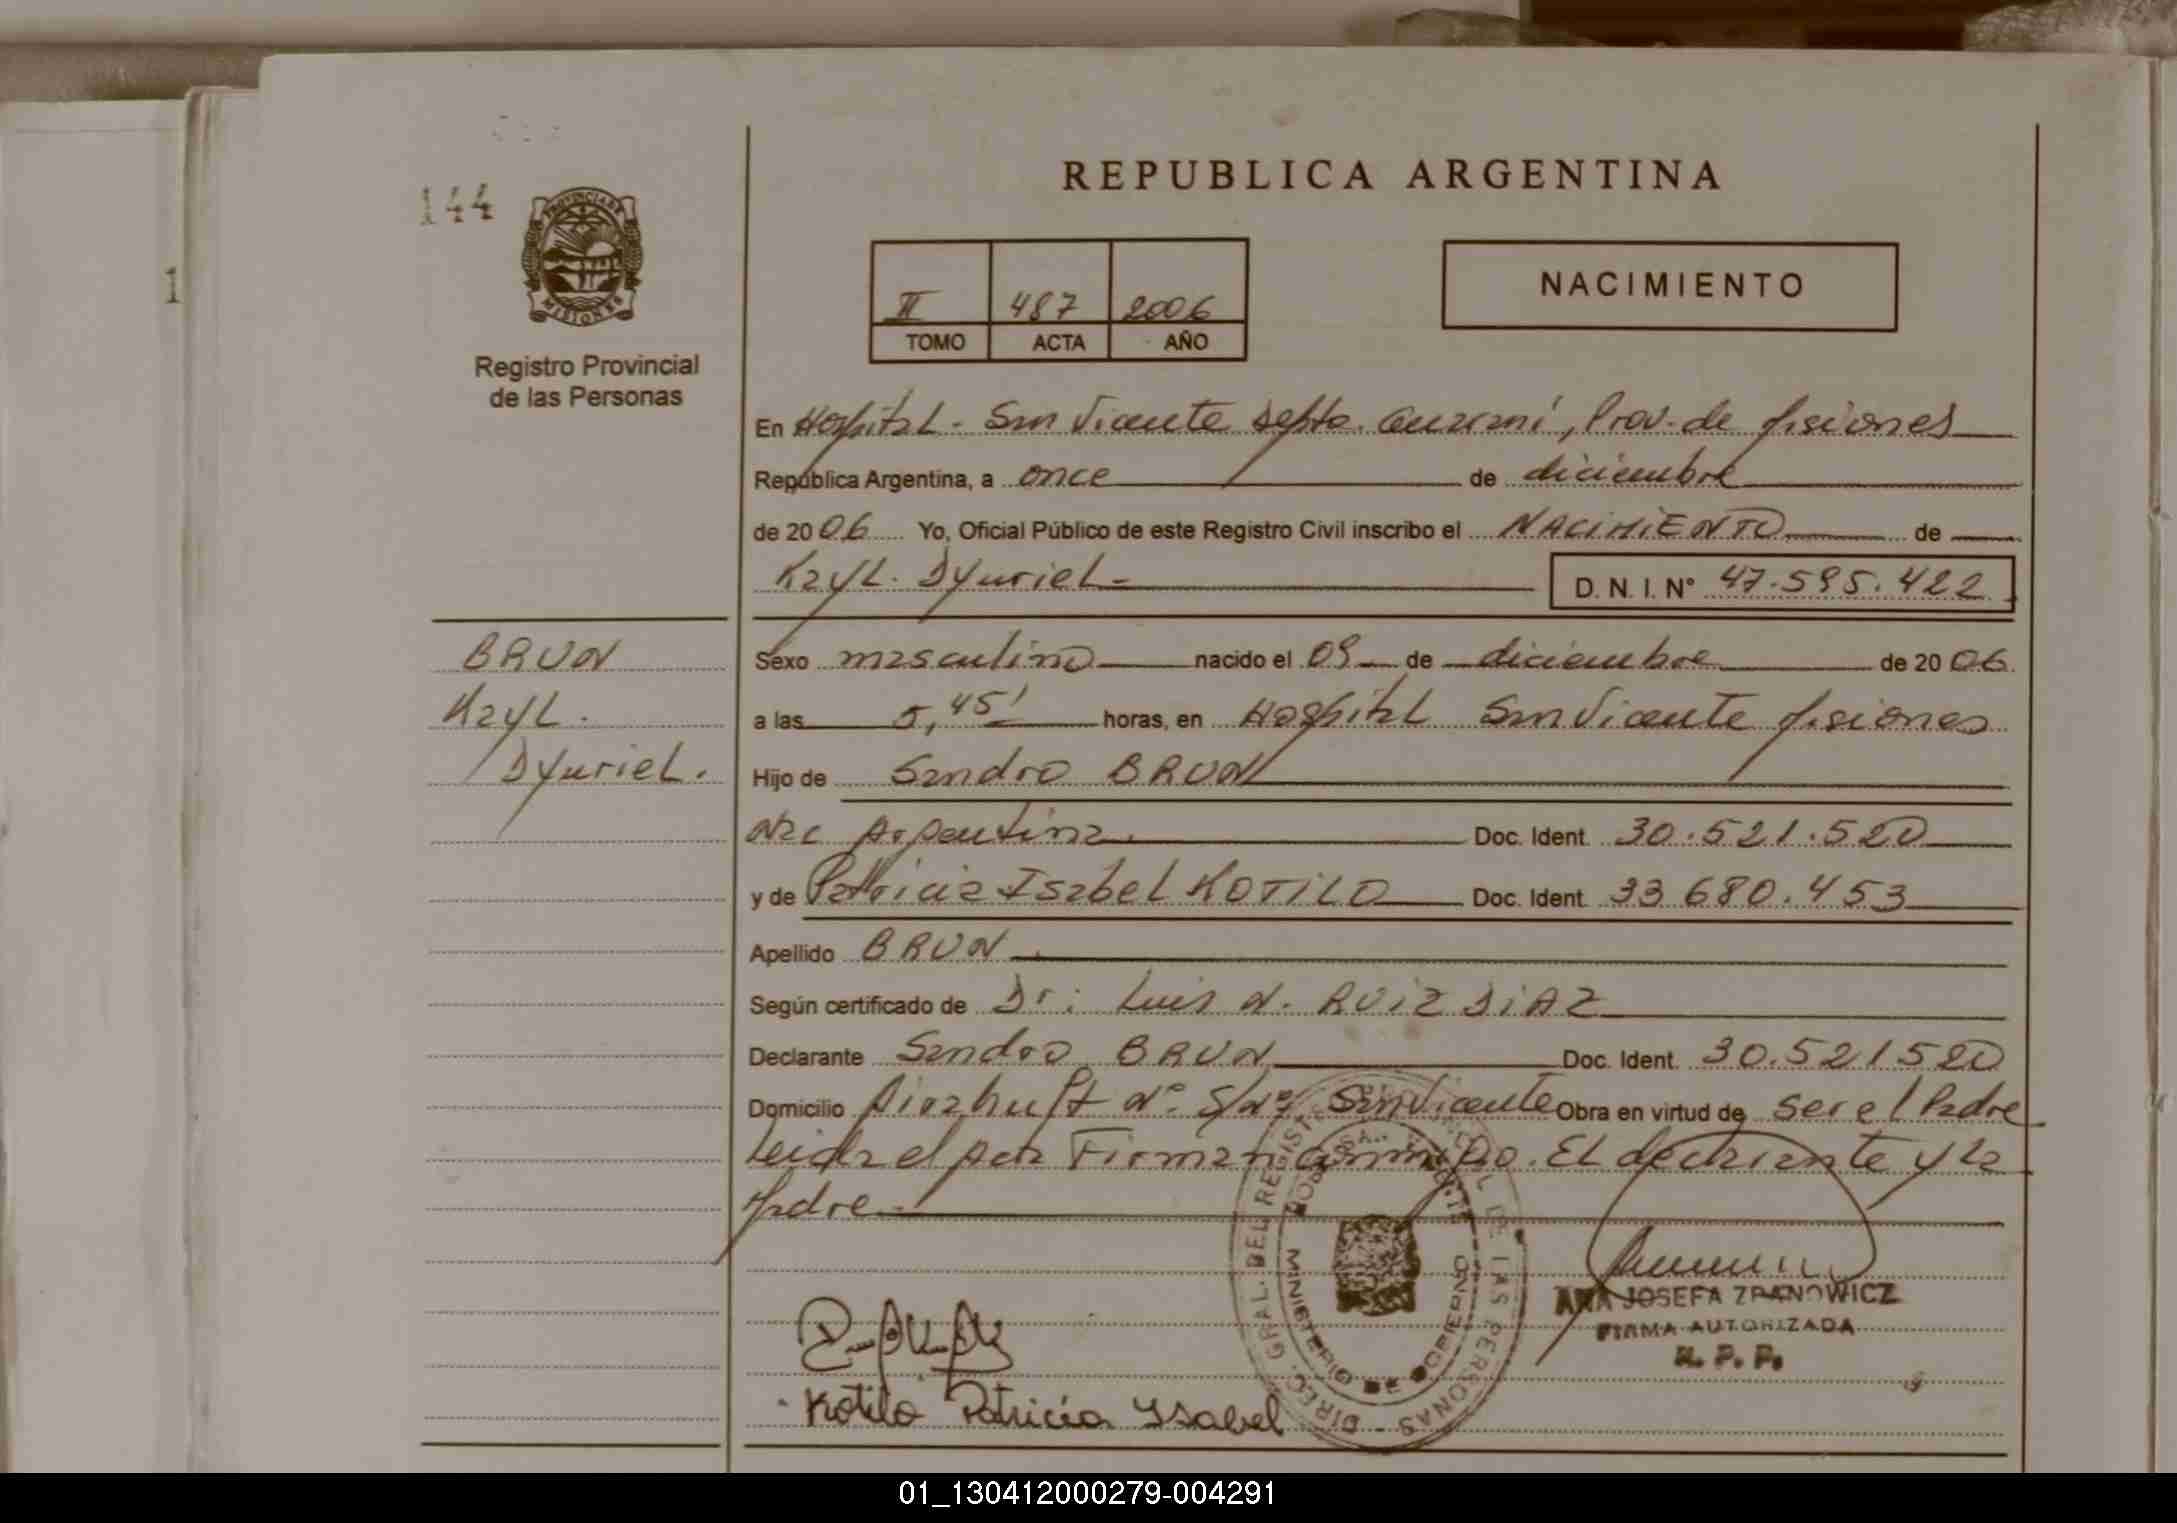 REPUBLICA ARGENTINA
144
PROVINCIA DE
MISIONES
Registro Provincial
de las Personas
II 487 2006
TOMO ACTA AÑO
NACIMIENTO
1
En Hospital - San Vicente Depto. Guaraní, Prov. de Misiones
República Argentina, a once de diciembre
de 2006 Yo, Oficial Público de este Registro Civil inscribo el NACIMIENTO de
Kayl. Dyuriel-
D. N. I. N° 47.595.422
BRUN
Kayl.
Dyuriel.
Sexo masculino nacido el 09 de diciembre de 2006
a las 5,45' horas, en Hospital San Vicente Misiones
Hijo de Sandro BRUN
Nac Argentina. Doc. Ident. 30.521.520
y de Patricia Isabel KOTILO Doc. Ident. 33 680.453
Apellido BRUN.
Según certificado de Dr: Luis N. RUIZ DIAZ
Declarante Sandro BRUN Doc. Ident. 30.521520
Domicilio N° S/N° San Vicente Obra en virtud de ser el Padre
Leida el acta Firman conmigo. El declarante y la
Madre.
DIREC. GRAL. DEL REGISTRO PROVINCIAL DE LAS PERSONAS
MINISTERIO DE GOBIERNO
ANA JOSEFA ZDANOWICZ
FIRMA AUTORIZADA
R. P. P.
Kotilo Patricia Ysabel
01_130412000279-004291